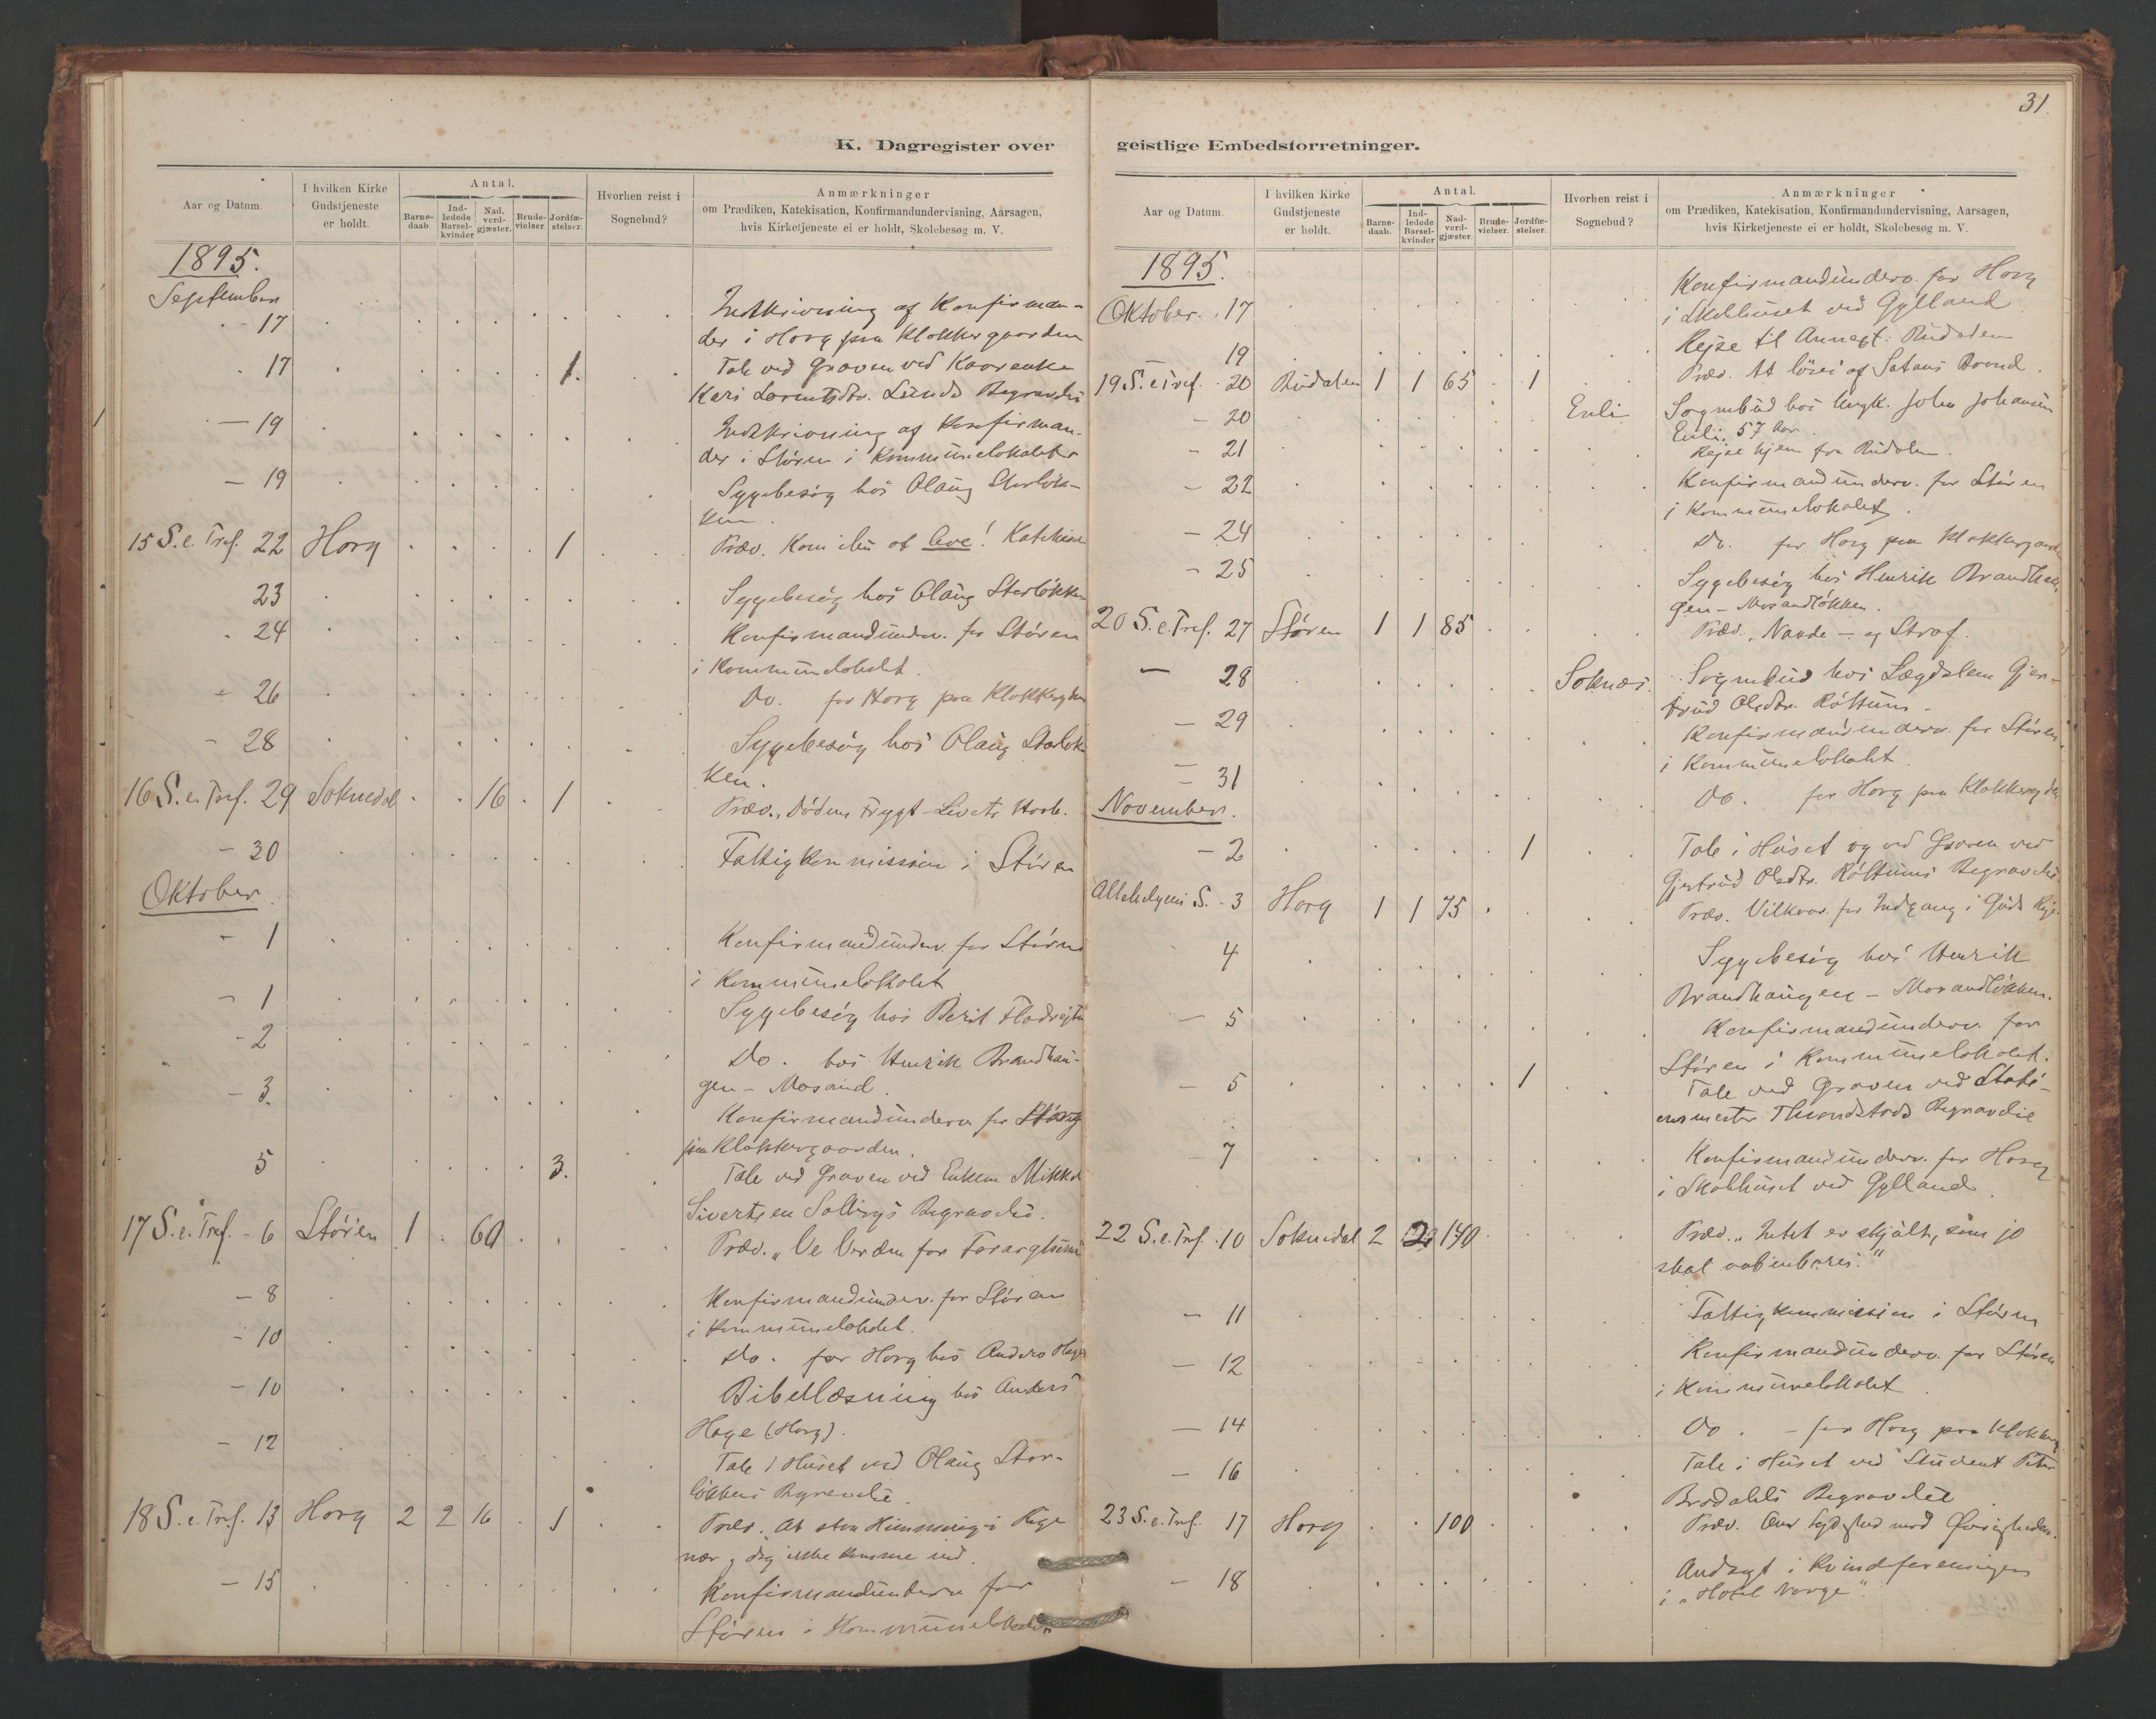 31.
K. Dagregister over
Aar og Datum.
I hvilken Kirke Gudstjeneste er holdt.
Antal.
Barne-daab.
Ind-ledede Barsel-kvinder
Nad. verd-gjæster.
Brude-vielser.
Jordfæ-stelser.
Hvorhen reist i Sognebud?
Anmærkninger
om Prædiken, Katekisation, Konfirmandundervisning, Aarsagen,
hvis Kirketjeneste ei er holdt, Skolebesøg m. V.
1895.
September
- 17 Indskrivning af Konfirman-
der i Horg paa Klokkergaarden
17 1. Tale ved Graven ved
Kari Lorentsdtr. Lunds Begravelse
- 19 Indskrivning af Konfirman-
der i Støren i Kommunelokalet
- 19 Sygebesøg hos Olaug Storløk-
ken.
15 S. e. Tref. 22 Horg 1 Præd. Kom ihu at leve! Katekisat
23 Sygebesøg hos Olaug Storløkken
24 Konfirmandunderv. for Støren
i Kommunelokalet.
- 26 Do. for Horg paa Klokkergden
- 28 Sygebesøg hos Olaug Storløk
ken.
16 S. e. Tref. 29 Soknedal 16 1 Præd. Dødens Frygt - Livets Haab.
- 30 Fattigkommission i Støren
Oktober.
- 1 Konfirmandunderv. for Støren
i Kommunelokalet
- 1 Sygebesøg hos Berit
- 2 Do. hos Henrik Brandhau-
gen - Mosand.
- 3 Konfirmandunderv. for Horg
paa Klokkergaarden.
5 3. Tale ved Graven ved Enkem. Mikkel
Sivertsen Solbergs Begravelse.
17 S. e. Tref. - 6 Støren 1 60 Præd. „Ve Verden for Forargelsen
- 8 Konfirmandunderv. for Støren
i Kommunelokalet.
- 10 Do. for Horg hos Anders Hage
- 10 Bibellæsning hos Anders
Hage (Horg).
- 12 Tale i Huset ved Olaug Stor-
løkkens Begravelse.
18 S. e. Tref. 13 Horg 2 2 16 1 Præd. At staa Himmerigs Rige
nær, dog ikke komme ind.
- 15 Konfirmandunderv for
Støren i Kommunelokalet.
geistlige Embedsforretninger.
Aar og Datum.
I hvilken Kirke Gudstjeneste er holdt.
Antal.
Barne-daab.
Ind-ledede Barsel-kvinder
Nad-verd-gjæster.
Brude-vielser.
Jordfæ-stelser.
Hvorhen reist i Sognebud?
Anmærkninger
om Prædiken, Katekisation, Konfirmandundervisning, Aarsagen,
hvis Kirketjeneste ei er holdt, Skolebesøg m. V.
1895.
Oktober. 17 Konfirmandunderv. for Horg
i Skolhuset ved Gylland
19 Rejse til Annext: Budalen
19 S. e. Tref. 20 Budalen 1 1 65 1 Præd. At løses af Satans Baand.
- 20 Enli Sognebud hos Ungk. John Johansen
Enli, 57 Aar.
- 21 Rejse hjem fra Budalen.
- 22 Konfirmandunderv. for Støren
i Kommunelokalet.
- 24 Do. for Horg paa Klokkergaarden
- 25 Sygebesøg hos Henrik Brandhau-
gen - Mosandløkken.
20 S. e. Tref. 27 Støren 1 1 85 Præd. Naade - og Straf.
- 28 Soknes. Sognebud hos Lægdslem Gjer-
trud Olsdtr. Røttum -
- 29 Konfirmandunderv. for Støren
i Kommunelokalet.
- 31 Do. for Horg paa Klokkergden
November.
- 2 1 Tale i Huset og ved Graven ved
Gjertrud Olsdtr. Røttums Begravelse.
Allehelgens S. - 3 Horg 1 1 75 Præd. Vilkaar for Indgang i Guds Rige
4 Sygebesøg hos Henrik
Brandhaugen - Mosandløkken.
- 5 Konfirmandunderv. for
Støren i Kommunelokalet.
- 5 1 Tale ved Graven ved Stati-
onsmester Begravelse
7 Konfirmandunderv. for Horg
i Skolhuset ved Gylland.
22 S. e. Tref. 10 Soknedal 2 2 140 Præd. „Intet er skjult, som jo
skal aabenbares."
- 11 Fattigkommission i Støren
- 12 Konfirmandunderv. for Støren
i Kommunelokalet
- 14 Do. - for Horg paa Klokkerg
- 16 Tale i Huset ved Student Peter
Brodahls Begravelse
23 S. e. Tref. 17 Horg 100 Præd. Om Lydighed mod Øvrigheden.
- 18 Andagt i Kvindeforeningen
i „Hotel Norge".